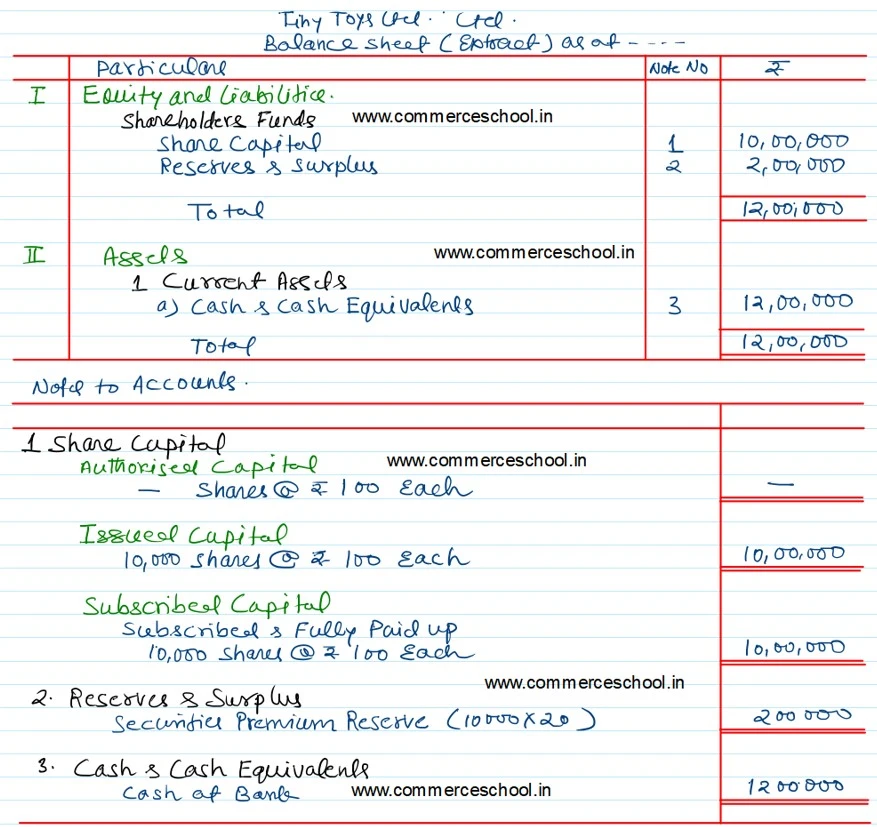 Tiny Toys Ltd. Ltd.
Balance Sheet (Extract) as at ----
Particulars Note No ₹
I Equity and Liabilities.
Shareholders Funds www.commerceschool.in
Share Capital 1 10,00,000
Reserves & Surplus 2 2,00,000
Total 12,00,000
II Assets www.commerceschool.in
1 Current Assets
a) Cash & Cash Equivalents 3 12,00,000
Total 12,00,000
Note to Accounts.
1 Share Capital
Authorised Capital www.commerceschool.in
— Shares @ ₹ 100 Each —
Issued Capital
10,000 Shares @ ₹ 100 Each 10,00,000
Subscribed Capital
Subscribed & Fully Paid up
10,000 Shares @ ₹ 100 Each 10,00,000
www.commerceschool.in
2. Reserves & Surplus
Securities Premium Reserve (10000 x 20) 200000
3. Cash & Cash Equivalents
Cash at Bank www.commerceschool.in 1200000